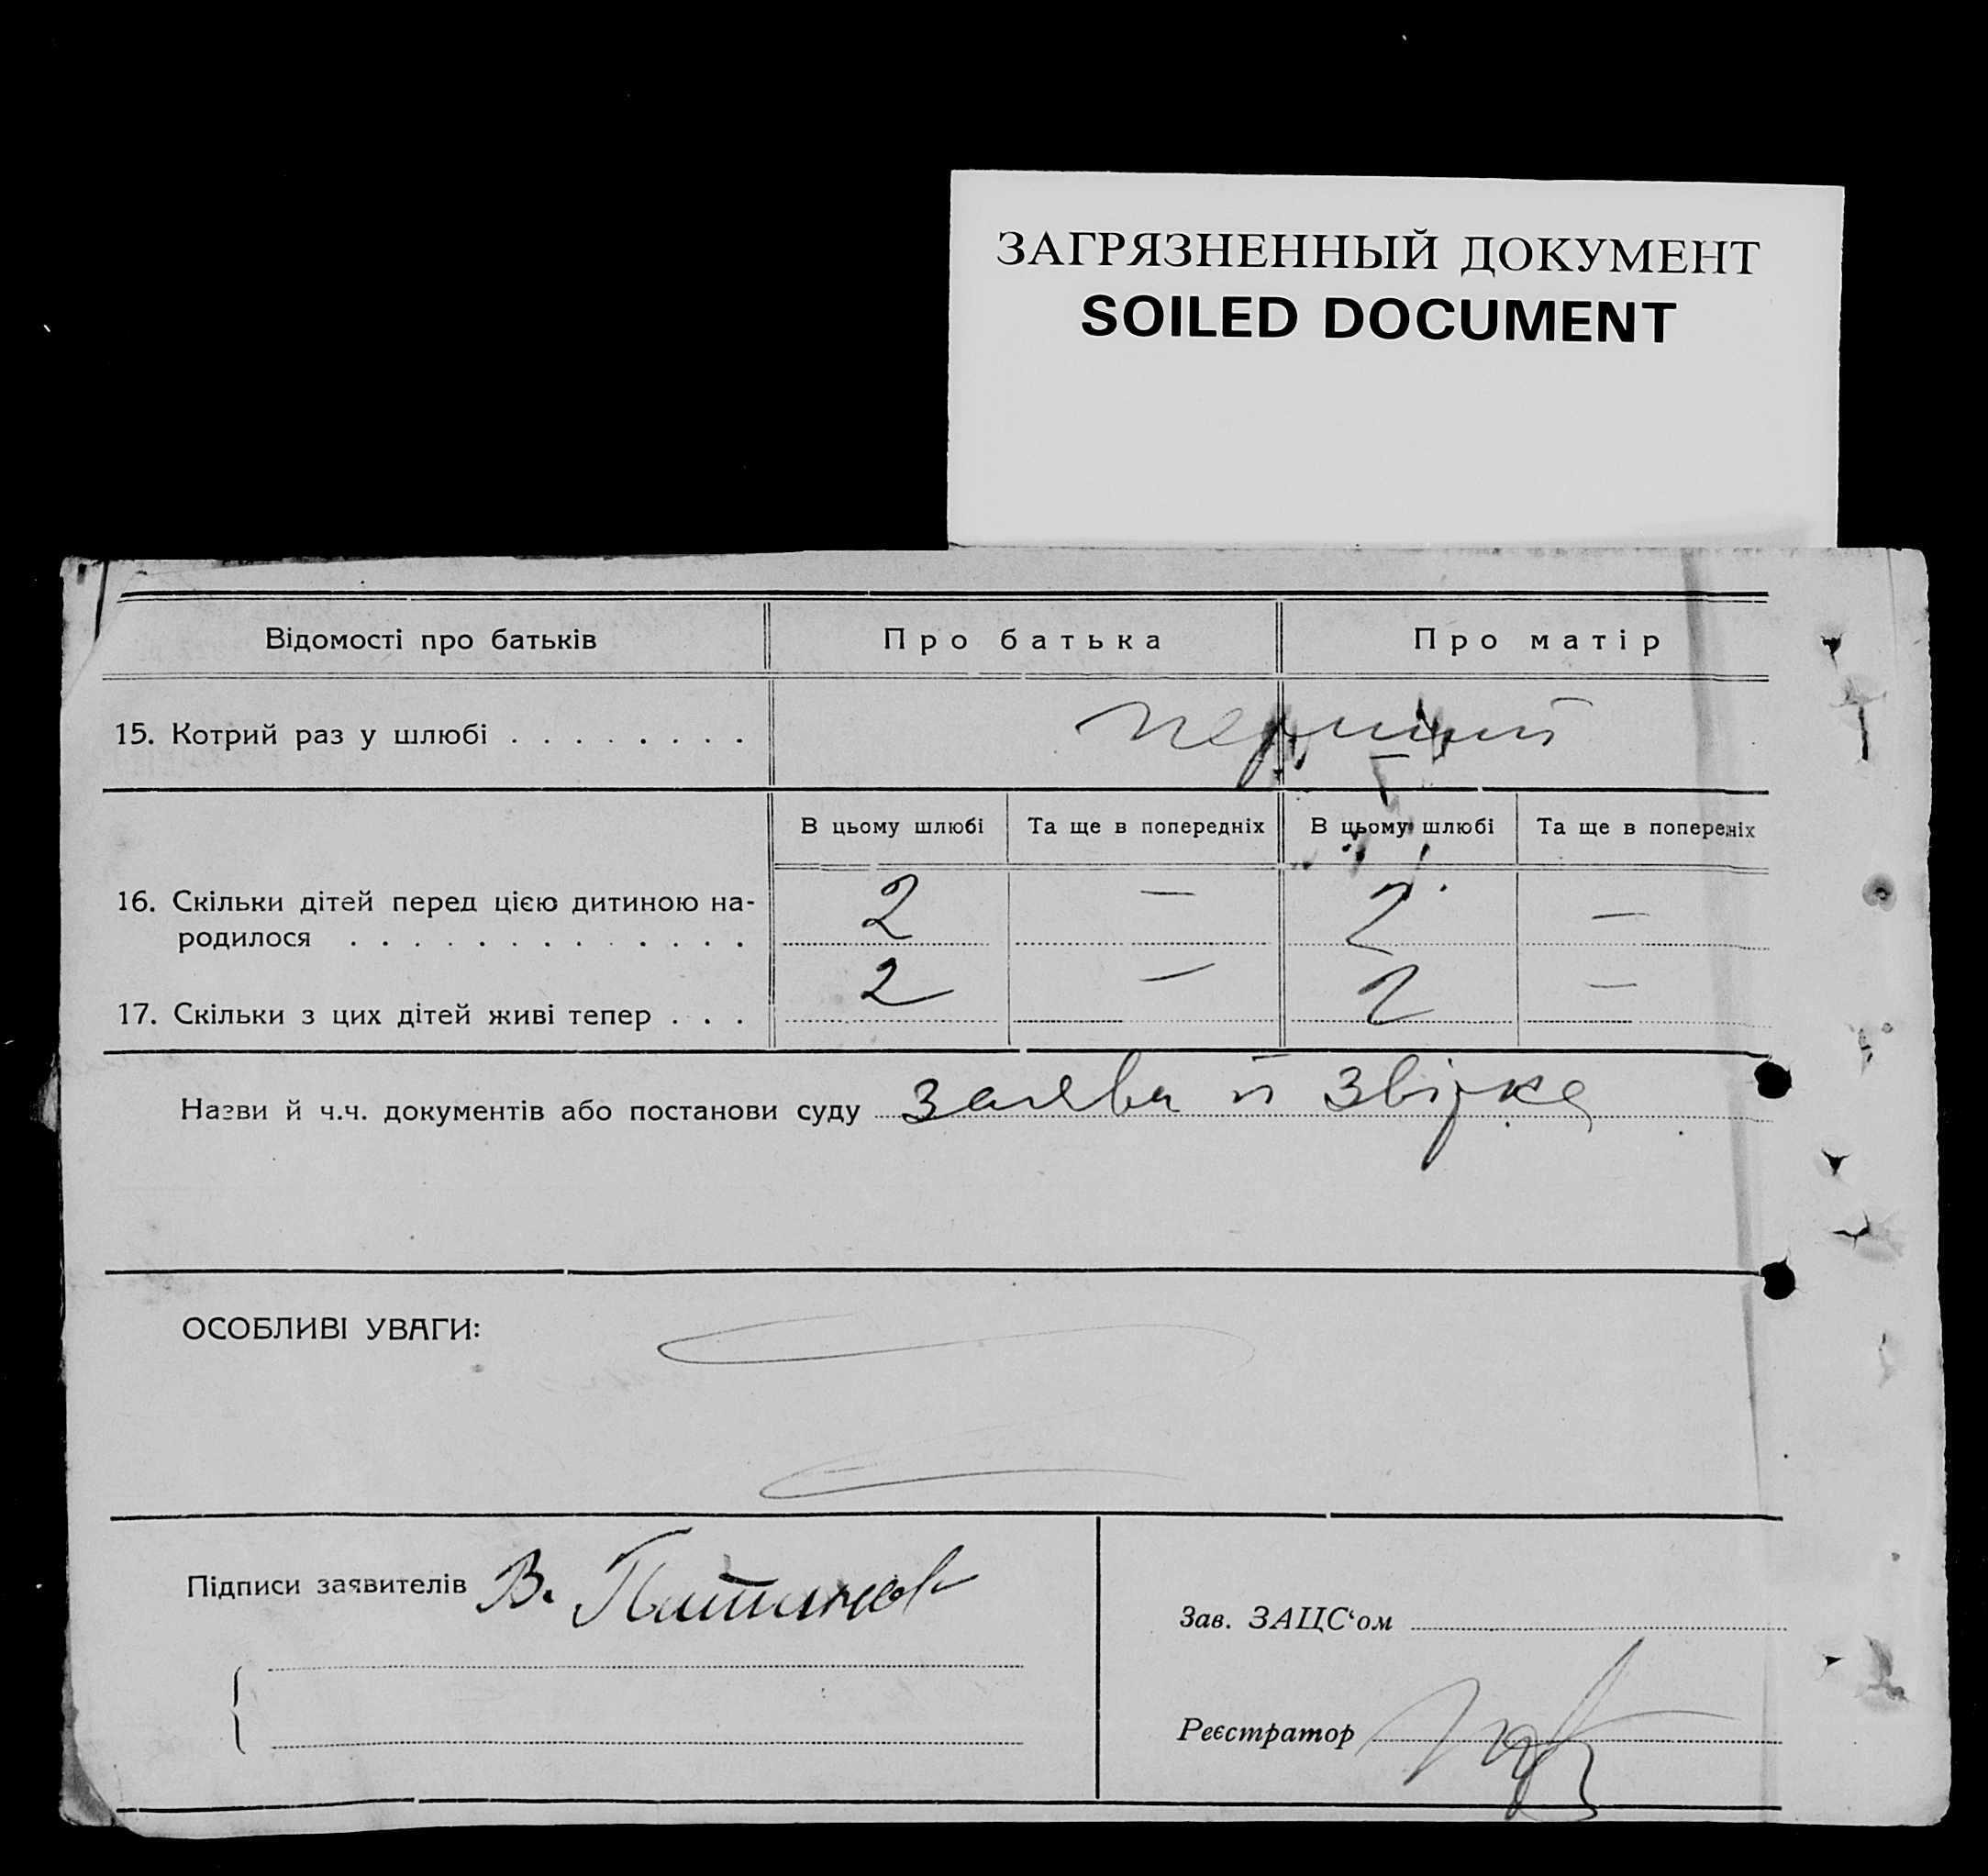 ЗАГРЯЗНЕННЫЙ ДОКУМЕНТ
SOILED DOCUMENT
Відомості про батьків Про батька Про матір
15. Котрий раз у шлюбі . . . . . . . . перший
В цьому шлюбі Та ще в попередніх В цьому шлюбі Та ще в попереніх
16. Скільки дітей перед цією дитиною на-
родилося . . . . . . . . . . . . . 2 — 2 —
17. Скільки з цих дітей живі тепер . . . 2 — 2 —
Назви й ч.ч. документів або постанови суду заява й звірка
ОСОБЛИВІ УВАГИ:
Підписи заявителів В.
Зав. ЗАЦС‘ом
Реєстратор